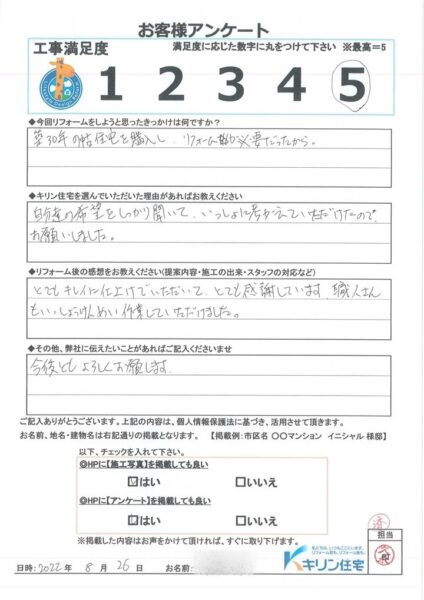 お客様アンケート
工事満足度 満足度に応じた数字に丸をつけて下さい ※最高＝5
1 2 3 4 5
◆今回リフォームをしようと思ったきっかけは何ですか？
築30年の中古住宅を購入し、リフォームが必要だったから。
◆キリン住宅を選んでいただいた理由があればお教えください
自分達の希望をしっかり聞いて、いっしょに考えていただけたので
お願いしました。
◆リフォーム後の感想をお教えください(提案内容・施工の出来・スタッフの対応など)
とてもキレイに仕上げていただいて、とても感謝しています。職人さん
もいっしょうけんめい作業していただけました。
◆その他、弊社に伝えたいことがあればご記入くださいませ
今後ともよろしくお願します。
ご記入ありがとうございます。上記の内容は、個人情報保護法に基づき、活用させて頂きます。
お名前、地名・建物名は右記通りの掲載となります。 【掲載例：市区名 〇〇マンション イニシャル 様邸】
以下、チェックを入れて下さい。
◎HPに【施工写真】を掲載しても良い
☑はい □いいえ
◎HPに【アンケート】を掲載しても良い
☑はい □いいえ
※掲載した内容はお声をかけて頂ければ、すぐに取り下げます。
済
担当
キリン住宅
日時：2022 年 8 月 26 日 お名前：